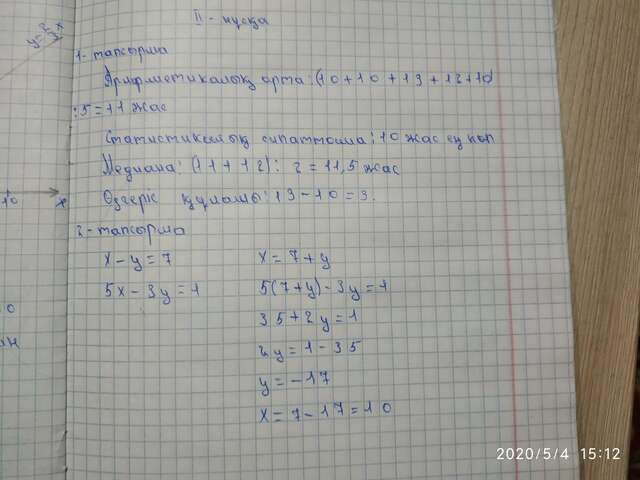 y=2/3x
II - нұсқа
1- тапсырма
Арифметикалық орта: (10+10+13+12+10)
:5=11 жас
Статистикалық сипаттама: 10 жас ең көп
Медиана: (11+12): 2=11,5 жас
Өзгеріс құламы: 13-10=3.
10 x
2- тапсырма
x-y=7 x=7+y
5x-3y=1 5(7+y)-3y=1
35+2y=1
2y=1-35
y=-17
x=7-17=10
2020/5/4 15:12